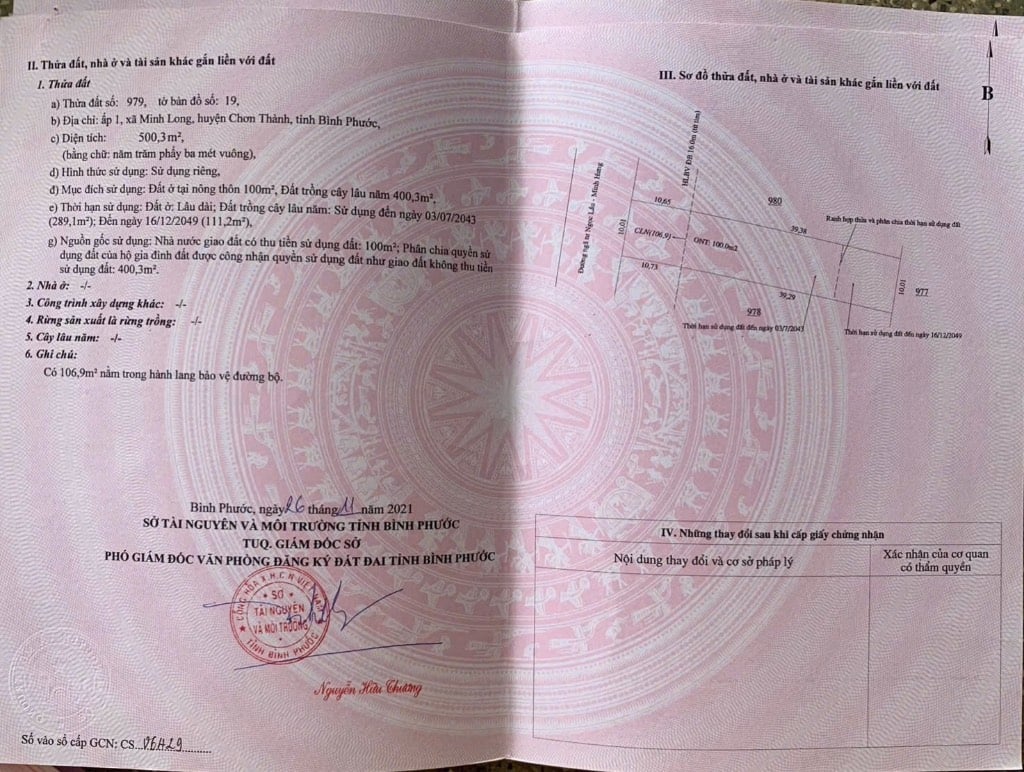 II. Thửa đất, nhà ở và tài sản khác gắn liền với đất
1. Thửa đất
a) Thửa đất số: 979, tờ bản đồ số: 19,
b) Địa chỉ: ấp 1, xã Minh Long, huyện Chơn Thành, tỉnh Bình Phước,
c) Diện tích: 500,3m²,
(bằng chữ: năm trăm phẩy ba mét vuông),
d) Hình thức sử dụng: Sử dụng riêng,
đ) Mục đích sử dụng: Đất ở tại nông thôn 100m², Đất trồng cây lâu năm 400,3m²,
e) Thời hạn sử dụng: Đất ở: Lâu dài; Đất trồng cây lâu năm: Sử dụng đến ngày 03/07/2043
(289,1m²); Đến ngày 16/12/2049 (111,2m²),
g) Nguồn gốc sử dụng: Nhà nước giao đất có thu tiền sử dụng đất: 100m²; Phân chia quyền sử
dụng đất của hộ gia đình đất được công nhận quyền sử dụng đất như giao đất không thu tiền
sử dụng đất: 400,3m².
2. Nhà ở: -/-
3. Công trình xây dựng khác: -/-
4. Rừng sản xuất là rừng trồng: -/-
5. Cây lâu năm: -/-
6. Ghi chú:
Có 106,9m² nằm trong hành lang bảo vệ đường bộ.
Bình Phước, ngày 26 tháng 11 năm 2021
SỞ TÀI NGUYÊN VÀ MÔI TRƯỜNG TỈNH BÌNH PHƯỚC
TUQ. GIÁM ĐỐC SỞ
PHÓ GIÁM ĐỐC VĂN PHÒNG ĐĂNG KÝ ĐẤT ĐAI TỈNH BÌNH PHƯỚC
CỘNG HÒA X.H.C.N VIỆT NAM
SỞ
TÀI NGUYÊN
VÀ MÔI TRƯỜNG
TỈNH BÌNH PHƯỚC
Nguyễn Hữu Thương
Số vào sổ cấp GCN: CS...06429
III. Sơ đồ thửa đất, nhà ở và tài sản khác gắn liền với đất
B
HLBV ĐB 16.0m (từ tim)
Đường ngã tư Ngọc Lầu - Minh Hưng
10,65
980
10,01
CLN(106,9)
ONT: 100.0m2
39,38
Ranh hợp thửa và phân chia thời hạn sử dụng đất
10,73
39,29
10,01
977
978
Thời hạn sử dụng đất đến ngày 03/7/2043
Thời hạn sử dụng đất đến ngày 16/12/2049
IV. Những thay đổi sau khi cấp giấy chứng nhận
Nội dung thay đổi và cơ sở pháp lý
Xác nhận của cơ quan
có thẩm quyền